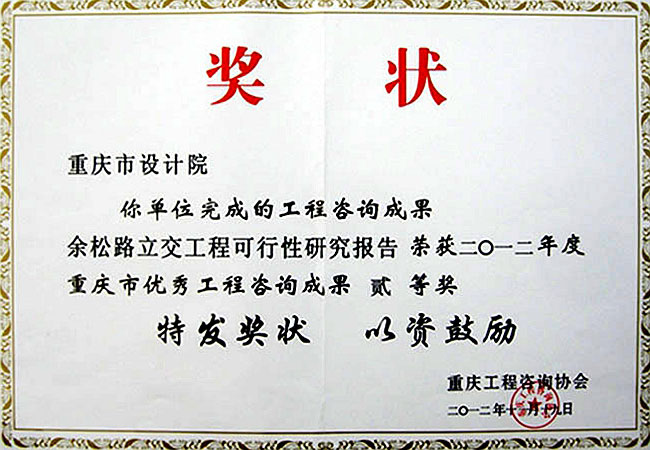 奖状
重庆市设计院
你单位完成的工程咨询成果
余松路立交工程可行性研究报告 荣获二〇一二年度
重庆市优秀工程咨询成果 贰 等奖
特发奖状 以资鼓励
重庆工程咨询协会
二〇一二年十一月十九日